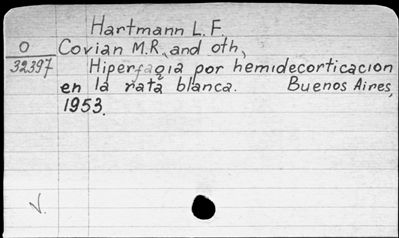 Hartmann L. F.
O Covian M.R. and oth.
32397 Hiperfagia por hemidecorticacion
en la rata blanca. Buenos Aires,
1953.
V.